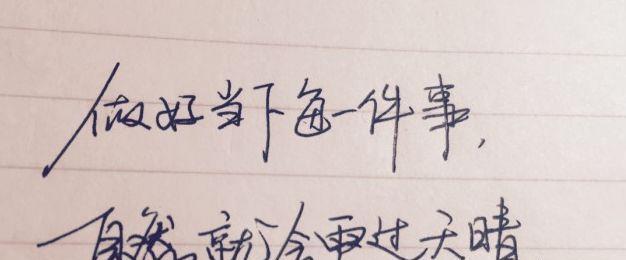 做好当下每一件事,
自然就会雨过天晴